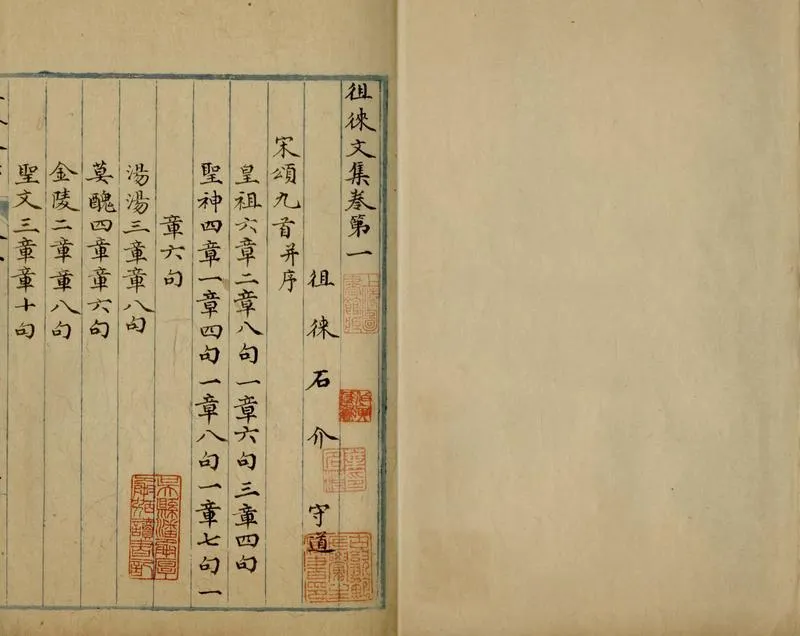 徂徠文集卷第一
徂徠石介守道
宋頌九首并序
皇祖六章二章八句一章六句三章四句
聖神四章一章四句一章八句一章七句一
章六句
湯湯三章章八句
莫醜四章章六句
金陵二章章八句
聖文三章章十句
上海圖書館藏